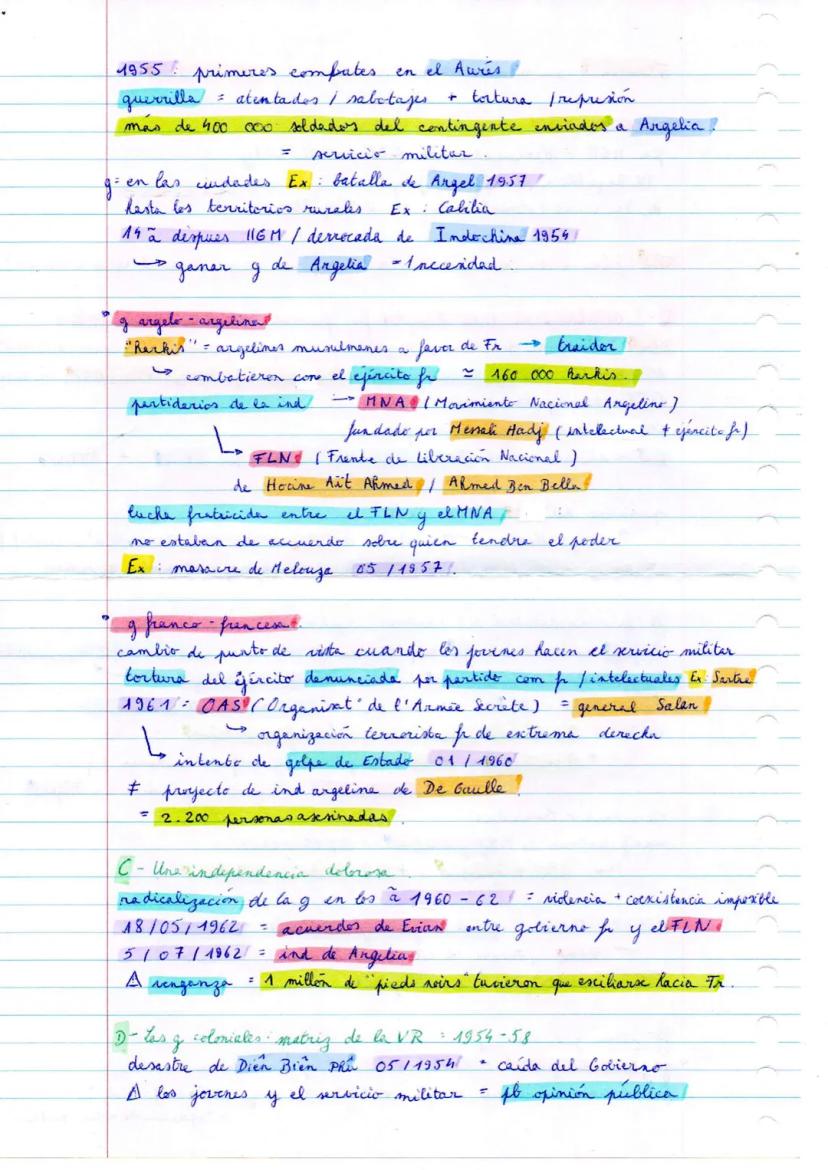 1955 : primeros combates en el Aurés
guerrilla = atentados / sabotajes + tortura / represión
más de 400 000 soldados del contingente enviados a Argelia.
= servicio militar.
g = en las ciudades Ex : batalla de Argel 1957
hasta los territorios rurales Ex : Cabilia
14 ã despues IIGM / derrocada de Indochina 1954
→ ganar g de Argelia = 1 necesidad.
• g argelo - argelina
"Harkis" = argelinos musulmanes a favor de Fr → traidor
↳ combatieron con el ejército fr ≃ 160 000 harkis.
partidarios de la ind → MNA (Movimiento Nacional Argelino)
fundado por Messali Hadj (intelectual ≠ ejército fr)
↳ FLN (Frente de Liberación Nacional)
de Hocine Aït Ahmed / Ahmed Ben Bella
lucha fratricida entre el FLN y el MNA :
no estaban de acuerdo sobre quien tendra el poder
Ex : masacre de Melouza 05 / 1957.
• g franco - francesa.
cambio de punto de vista cuando los jovenes hacen el servicio militar
tortura del ejército denunciada por partido com fr / intelectuales Ex Sartre
1961 = OAS (Organisat° de l'Armée Secrète) = general Salan
↳ organización terrorista fr de extrema derecha
↳ intento de golpe de Estado 01 / 1960
≠ proyecto de ind argelina de De Gaulle
= 2.200 personas asesinadas.
C - Una independencia dolorosa
radicalización de la g en los ã 1960 - 62 = violencia + coexistencia imposible
18 / 05 / 1962 = acuerdos de Evian entre gobierno fr y el FLN
5 / 07 / 1962 = ind de Argelia
⚠ venganza = 1 millón de "pieds noirs" tuvieron que exciliarse hacia Fr.
D - Las g coloniales : matriz de la VR : 1954 - 58
desastre de Diên Biên Phû 05 / 1954 = caída del Gobierno
⚠ los jovenes y el servicio militar = pb opinión pública